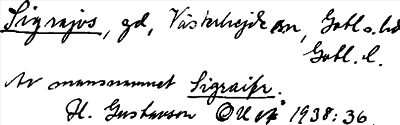 Sigrajvs, gd, Västerhejde sn, Gotl.s. hd
Gotl. l.
Av mansnamnet Sigraifr.
H. Gustavson 1938: 36.